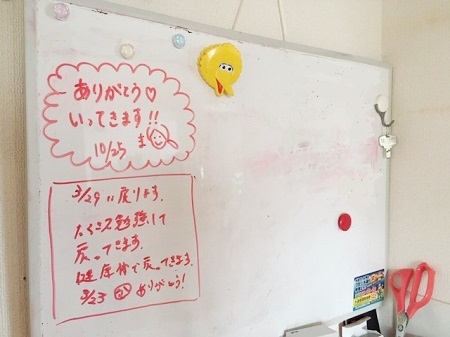 ありがとう♡
いってきます!!
10/25 ま
3/29に戻ります.
たくさん勉強して
戻ってきます.
健康体で戻ってきます.
3/23 ありがとう!